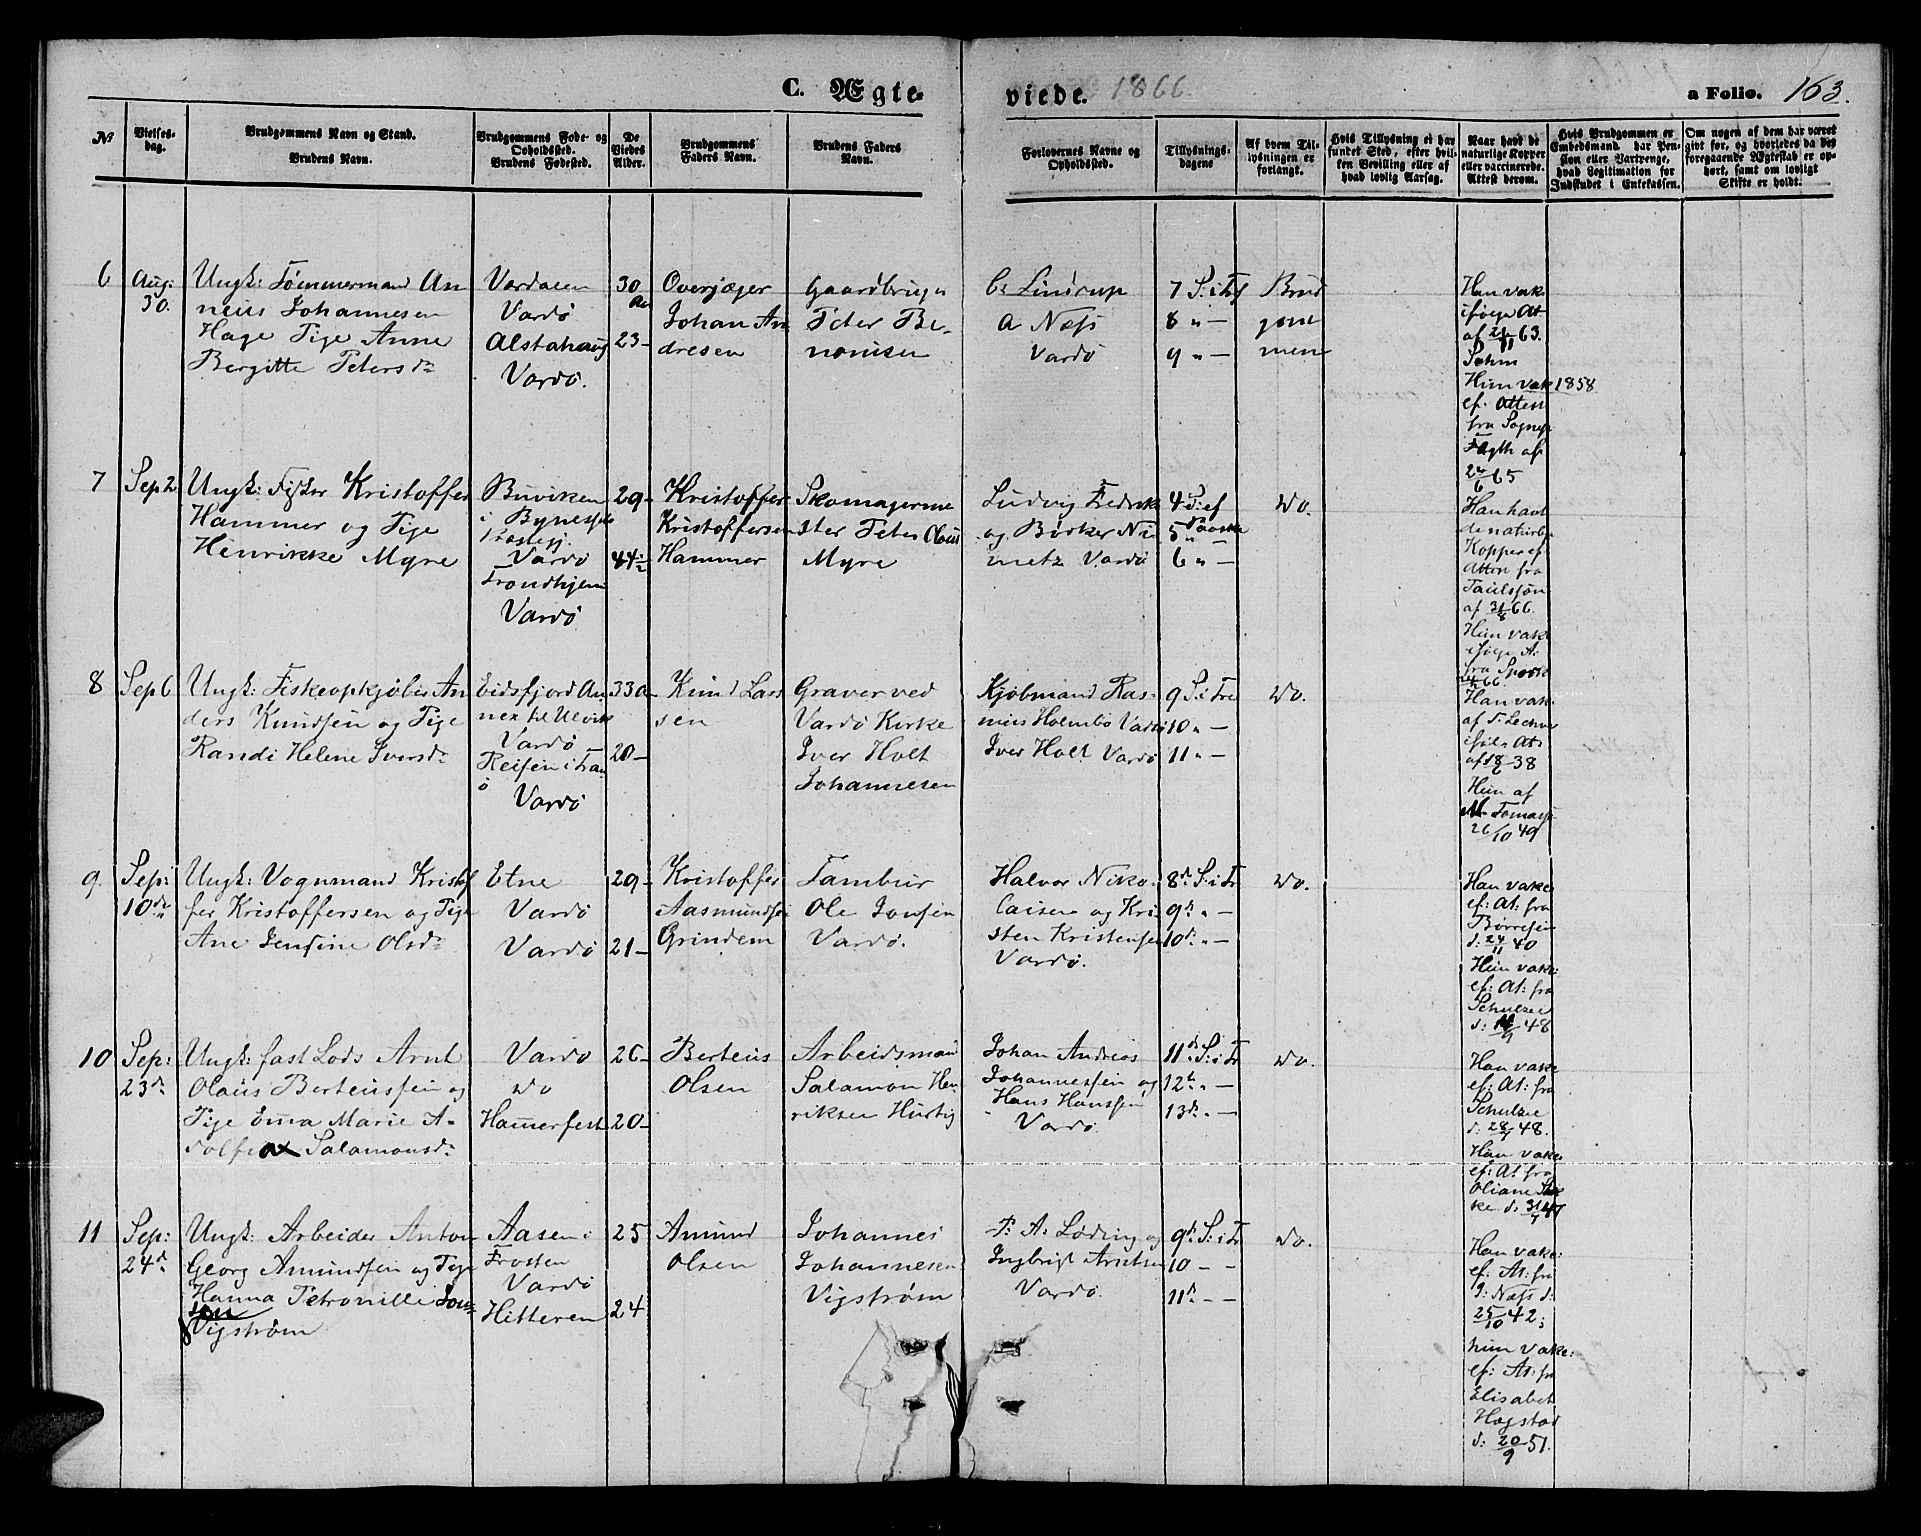 C. Ægteviede. 1866
a Folio. 163.
№
Vielsesdag.
Brudgommens Navn og Stand.
Brudens Navn.
Brudgommens Føde- og
Opholdssted.
Brudens Fødested.
De
Viedes
Alder.
Brudgommens
Faders Navn.
Brudens Faders
Navn.
Forlovernes Navne og
Opholdssted.
Tillysnings-
dagene
Af hvem Til-
lysningen er
forlangt.
Hvis Tillysning ei har
fundet Sted, efter hvil-
ken Bevilling eller af
hvad lovlig Aarsag.
Naar havt de
naturlige Kopper
eller vaccinerede.
Attest derom.
Hvis Brudgommen er
Embedsmand, har Pen-
sion eller Vartpenge,
hvad Legitimation for
Indskudet i Enkekassen.
Om nogen af dem har været
givt før, og hvorledes da det
foregaaende Ægteskab er op-
hørt, samt om lovligt
Skifte er holdt.
6
Aug:
30.
Ungk: Tømmermand An
neus Johannesen
Hage Pige Anne
Bergitte Petersd:
Værdalen
Vardø
Alstahaug
Vardø.
30
Aar
23-
Overjæger
Johan An
dresen
Gaardbruger
Peter Be-
nonisen
C: Lindrup
A Næss
Vardø
7 S: i Tref
8 " -
9 " -
Brud
gom
men
Han vak:
ifølge At
af 63.
Hun vak 1858
ef. Attest
fra Sognep
af
65
7
Sep 2
Ungk: Fisker Kristoffer
Hammer og Pige
Henrikke Myre
Buviken
i Bynessets
Præstegj.
Vardø
Trondhjem
Vardø
29-
44 1/2
Kristoffer
Kristoffersen
Hammer
Skomagerme
ster Peter Olaus
Myre
Ludvig Fredrik
og Børker Ni
metz Vardø
4 S: ef
5 " -
6 " -
Do.
Han havt
de naturlige
Kopper ef
Atten fra
Paulssøn
af 31/8 66.
Hun vak:
ifølge A:
fra
66.
8
Sep 6
Ungk: Fiskeopkjøber An
ders Knudsen og Pige
Randi Helene Iversd:
Eidsfjord An
nex til Ulvik
Vardø
Reisen i Tran
ø
Vardø
33a-
20-
Knud Lars
sen
Graver ved
Vardø Kirke
Iver Holt
Johannesen
Kjøbmand Ras-
mus Holmbo Vardø
Iver Holt Vardø
9 S: i Tre
10 " -
11 " -
Do.
Han vak:
af
At:
af 18/6 38
Hun af
26/10 49
9.
Sep:
10de
Ungk: Vognmand Kristof
fer Kristoffersen og Pige
Ane Jensine Olsd:
Etne
Vardø
Vardø
29-
21-
Kristoffer
Aasmundsen
Grindem
Tambur
Ole Jonsen
Vardø.
Halvor Niko
laisen og Kri
sten Kristensen
Vardø.
8d: S: i Tr
9d: " -
10d: " -
Do.
Han vake:
ef: At: fra
Børresen
d: 24/11 40
Hun vake:
ef: At: fra
Schulzee
d: 48
10
Sep:
23de
Ungk: fast Lods Arnt
Olaus Berteussen og
Pige Ema Marie A-
dolfi Salamonsd:
Vardø
Do
Hamerfest
26-
20-
Berteus
Olsen
Arbeidsman
Salamon Hen
riksen Hurtig
Johan Andreas
Johannessen og
Hans Hanssen
Vardø.
11d: S: i Tr
12te " -
13d: " -
Do.
Han vake
ef: At: fra
Schulzee
d: 28/7 48.
Han vake:
ef: At: fra
Oliane
d: 31/7
11
Sep:
24d:
Ungk: Arbeider Anton
Georg Amundsen og Pige
Hanna Petronille
Vigstrøm
Aasen i
Frosten
Vardø
Hitteren
25
24
Amund
Olsen
Johannes
Johannesen
Vigstrøm
P: A: Løding og
Ingbrigt Arntsen
Vardø.
9d: S: i Tr
10 - -
11d: - -
Do.
Han vake:
ef: At: fra
J: Næss d:
25/10 42;
hun vake:
ef: At: fra
Elisabet
Hogstad
d: 20/9 51.